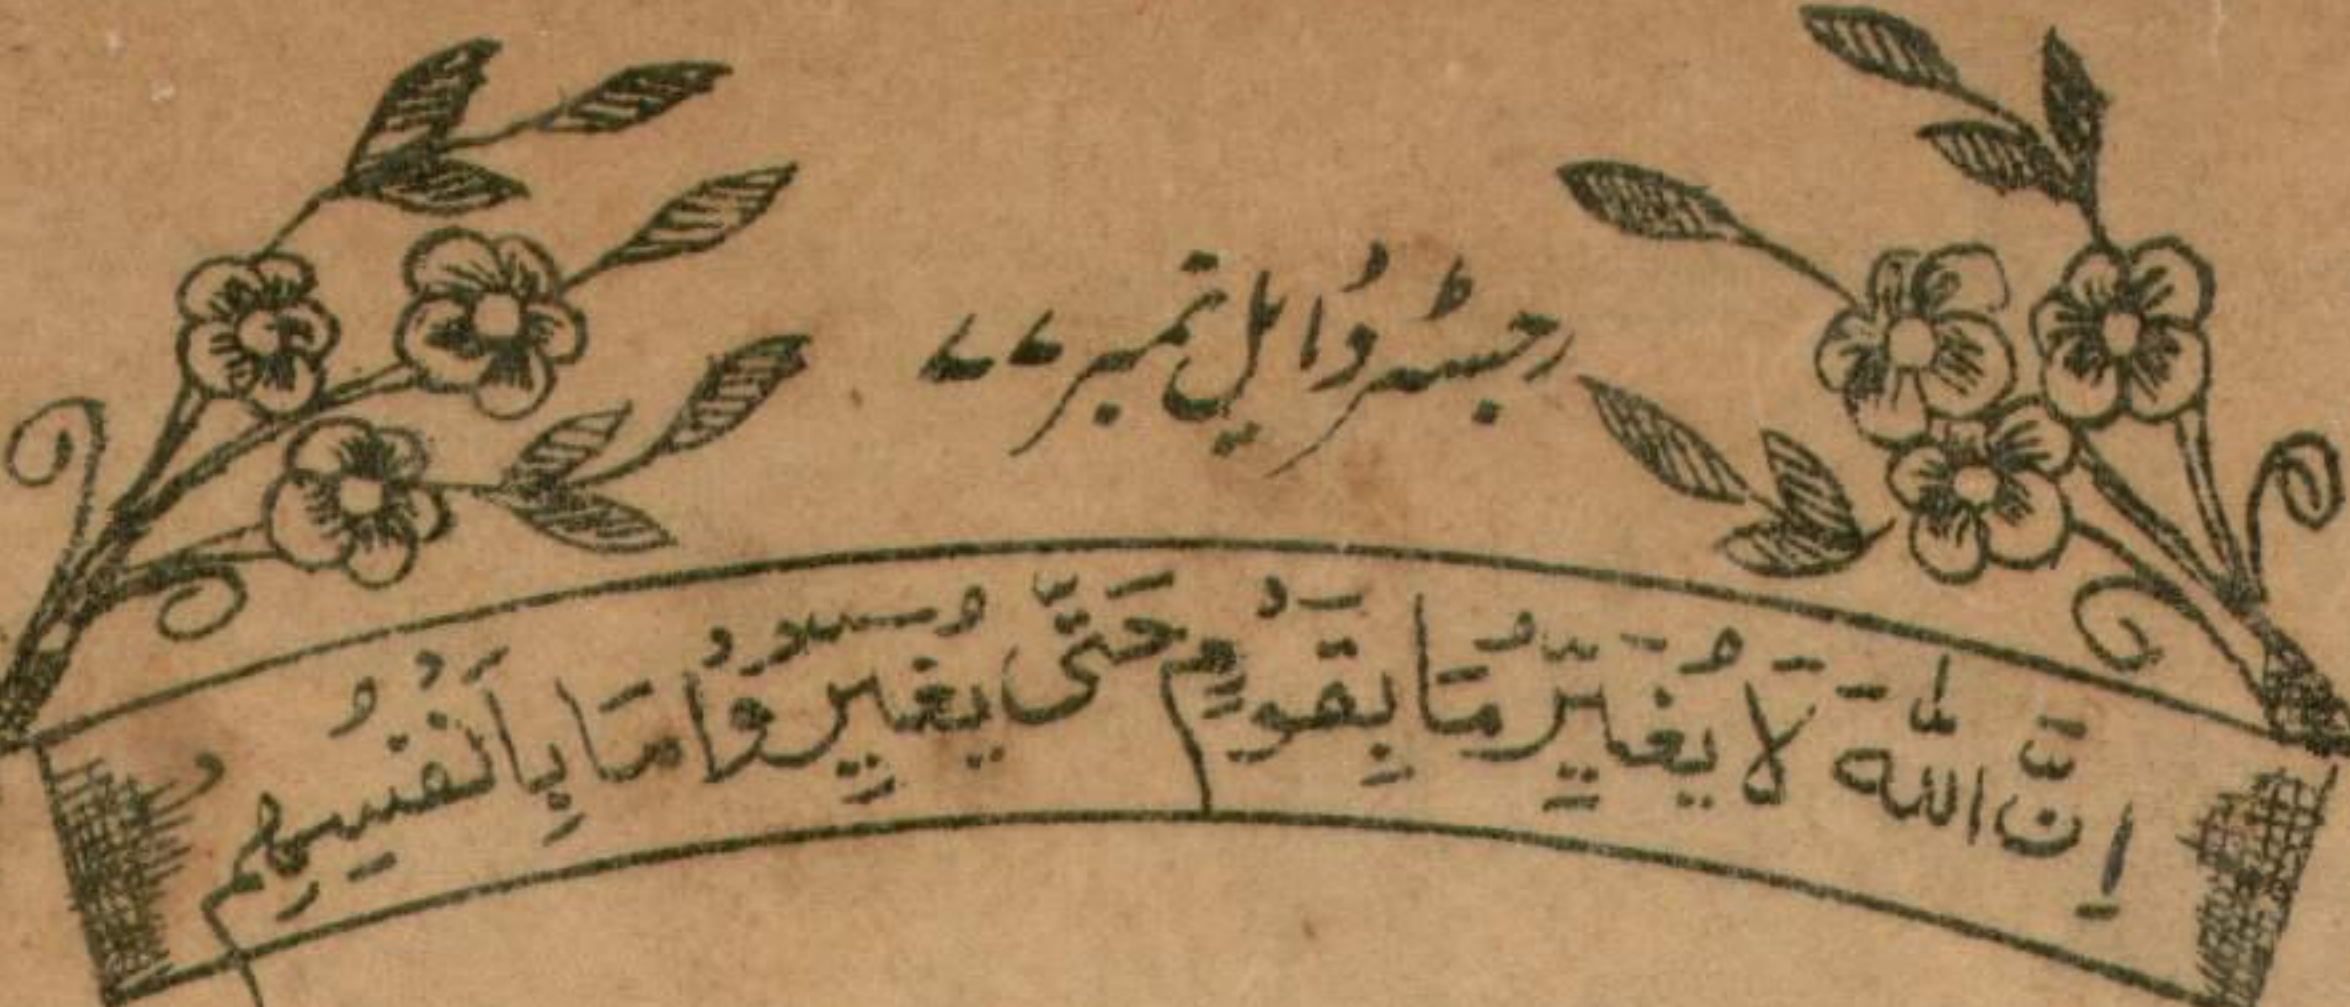 رجسٹر ڈ ایل نمبر ۷۷
اِنَّ اللّٰهَ لَا یُغَیِّرُ مَا بِقَوْمٍ حَتّٰی یُغَیِّرُوْا مَا بِاَنْفُسِهِمْ